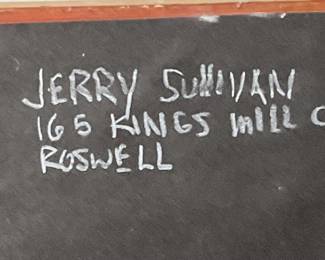 JERRY SULLIVAN
165 KINGS MILL C
ROSWELL